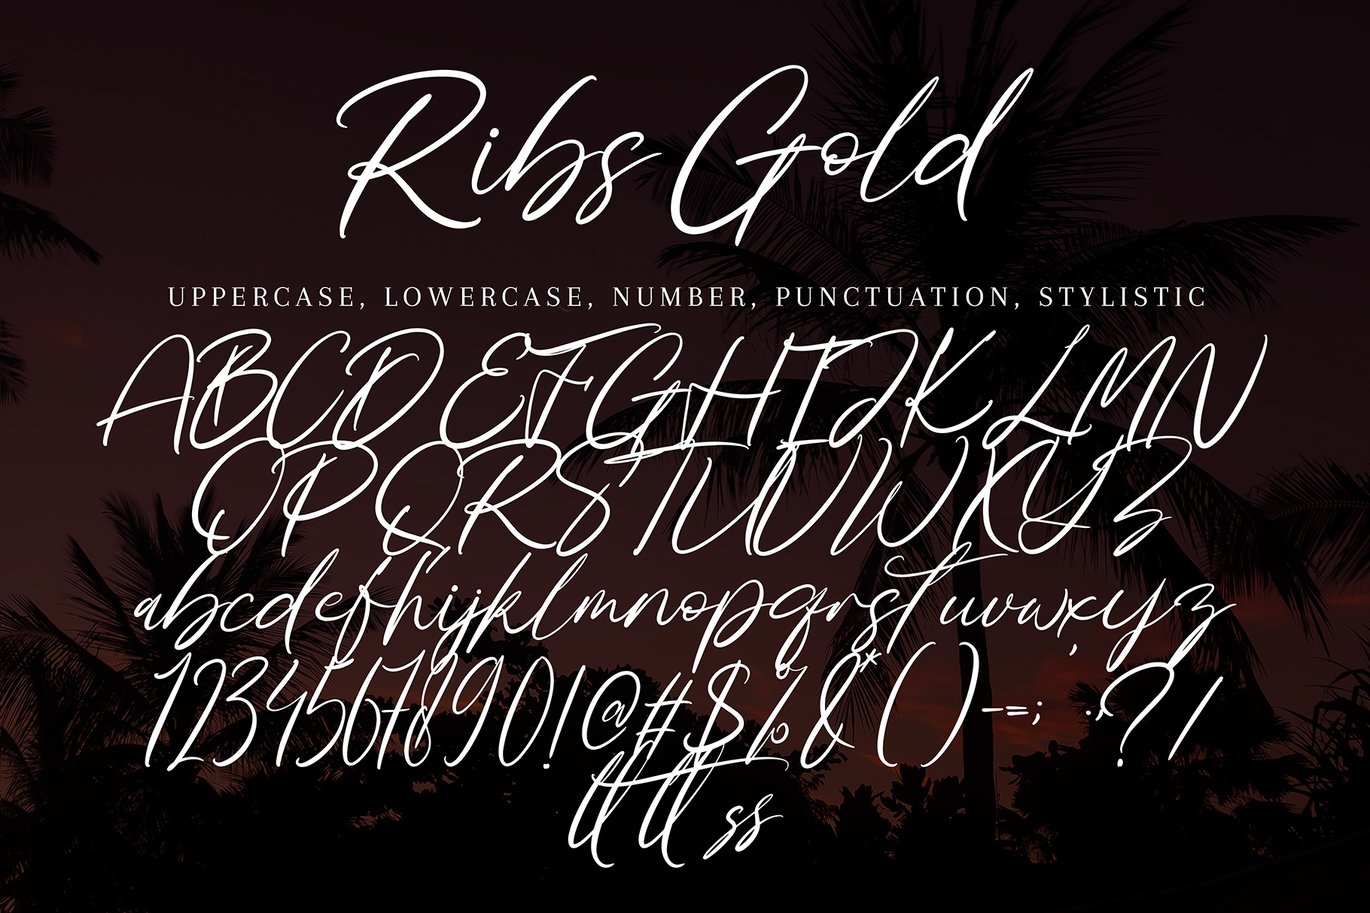 Ribs Gold
UPPERCASE, LOWERCASE, NUMBER, PUNCTUATION, STYLISTIC
ABCD EFGHIJK LMN
OPQRSTUVWXYZ
abcdefhijklmnopqrstuvwxyz
1234567890!@#$%&*()-=; .,?/
tt tt ss